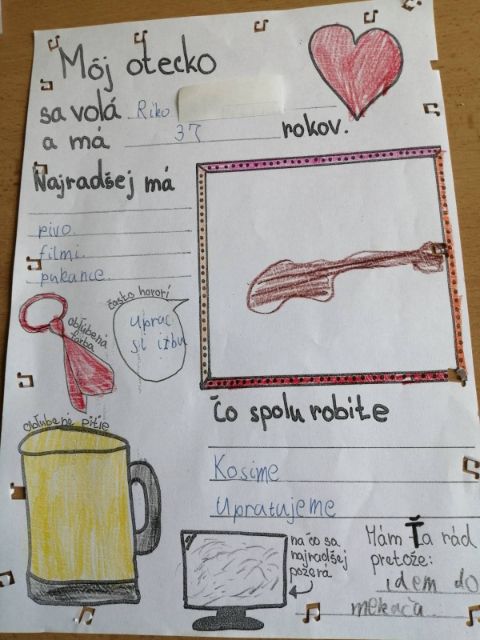 Môj otecko
sa volá Riko
a má 37 rokov.
Najradšej má
pivo.
filmi.
pukance.
často hovorí
uprac
si izbu
obľúbená
farba
Čo spolu robíte
Kosíme
Upratujeme
obľúbené pitie
na čo sa
najradšej
pozerá
Mám Ťa rád
pretože:
idem do
mekáča